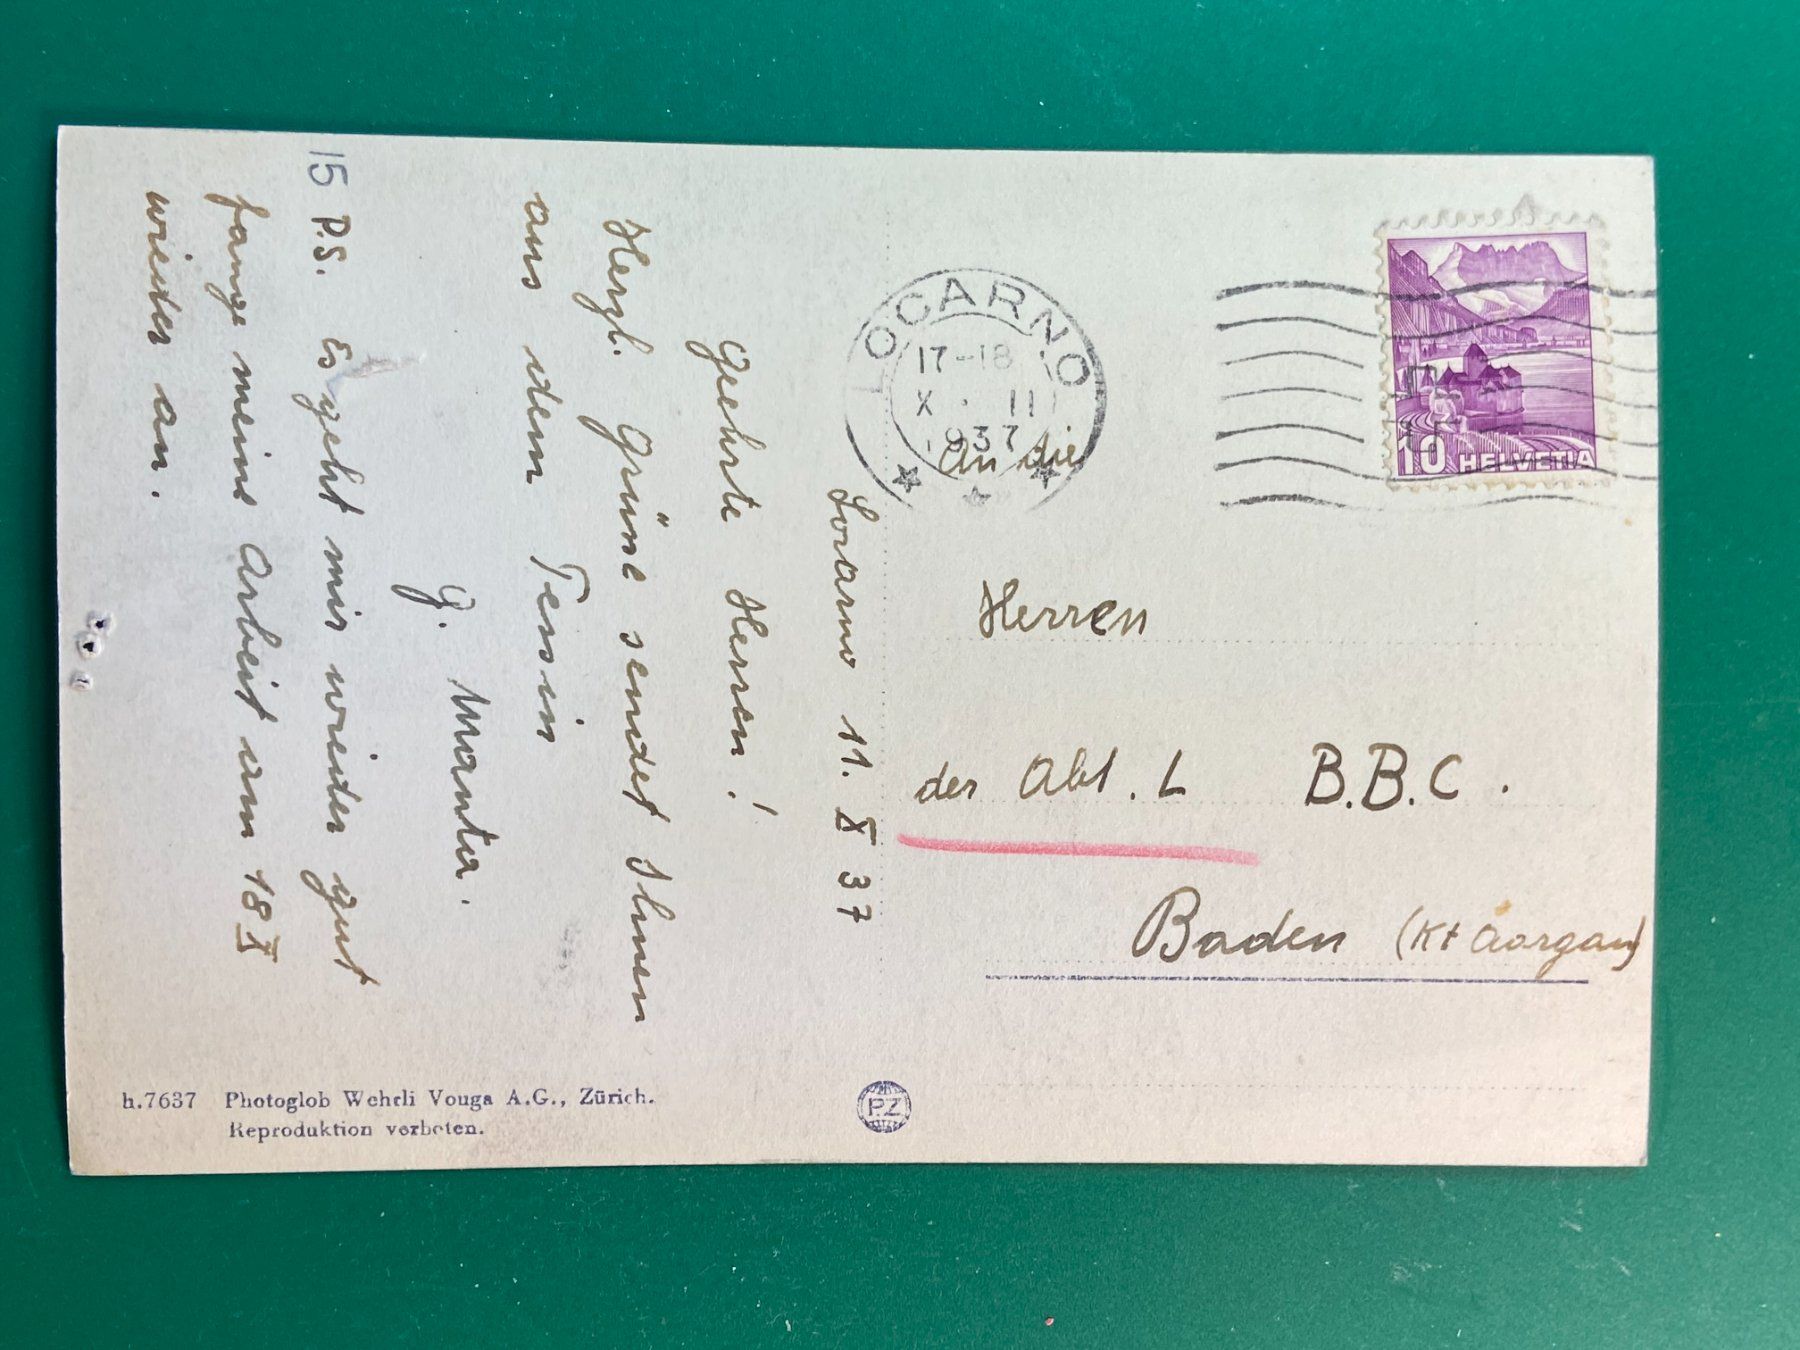 Locarno 11. X 37
Geehrte Herren!
Herzl. Grüne sendet Ihnen
aus dem Tessin
G. Manta.
15 P.S. Es geht mir wieder gut
fange meine Arbeit am 18 X
wieder an.
LOCARNO
17-18
X · 11
1937
10 HELVETIA
An die
Herren
der Abt. L B.B.C.
Baden (Kt Aargau)
h.7637 Photoglob Wehrli Vouga A.G., Zürich.
Reproduktion verboten.
P.Z